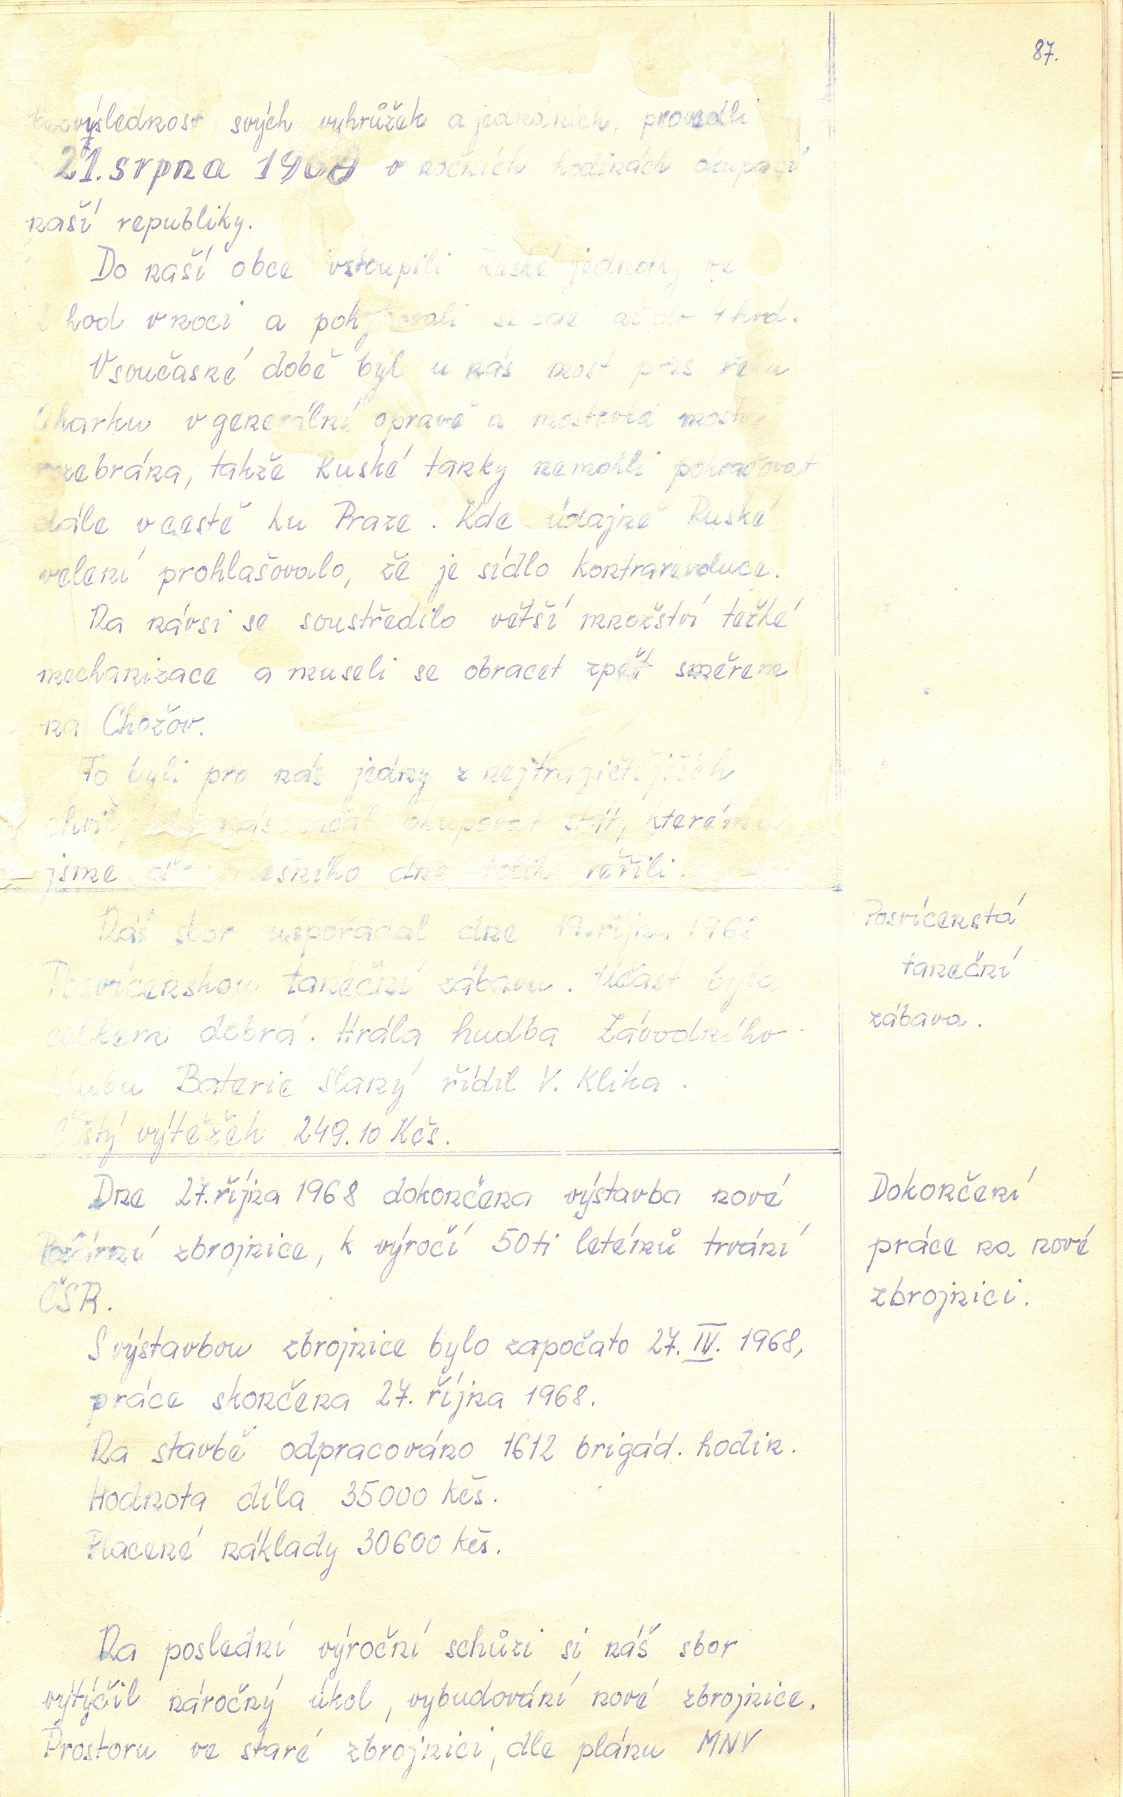 87.
bezvýslednost svých vyhrůžek a jednáních, provedli
21. srpna 1968 v nočních hodinách okupaci
naší republiky.
Do naší obce vstoupili Ruské jednotky ve
hod v noci a pohybovali se zde až do hod.
V současné době byl u nás most přes řeku
Oharku v generální opravě a mostovka mostu
rozebrána, takže Ruské tanky nemohli pokračovat
dále v cestě ku Praze. Kde údajně Ruské
velení prohlašovalo, že je sídlo kontrarevoluce.
Na návsi se soustředilo větší množství težké
mechanizace a museli se obracet zpět směrem
na Chožov.
To byli pro nás jedny z nejtragičtějších
chvil, nás začal okupovat stát, kterému
jsme do dnešního dne tolik věřili.
Náš sbor uspořádal dne října 1968
Posvícenskou taneční zábavu. Účast byla
celkem dobrá. Hrála hudba Závodního
klubu Baterie Slaný řídil V. Kliha.
Čistý výtěžek 249.10 Kčs.
Posvícenstá
taneční
zábava.
Dne 27. října 1968 dokončena výstavba nové
Požární zbrojnice, k výročí 50ti leténů trvání
ČSR.
S výstavbou zbrojnice bylo započato 27. IV. 1968,
práce skončena 27. října 1968.
Na stavbě odpracováno 1612 brigád. hodin.
Hodnota díla 35000 Kčs.
Placené náklady 30600 Kčs.
Dokončení
práce na nové
zbrojnici.
Na poslední výroční schůzi si náš sbor
vytýčil náročný úkol, vybudování nové zbrojnice.
Prostoru ve staré zbrojnici, dle plánu MNV